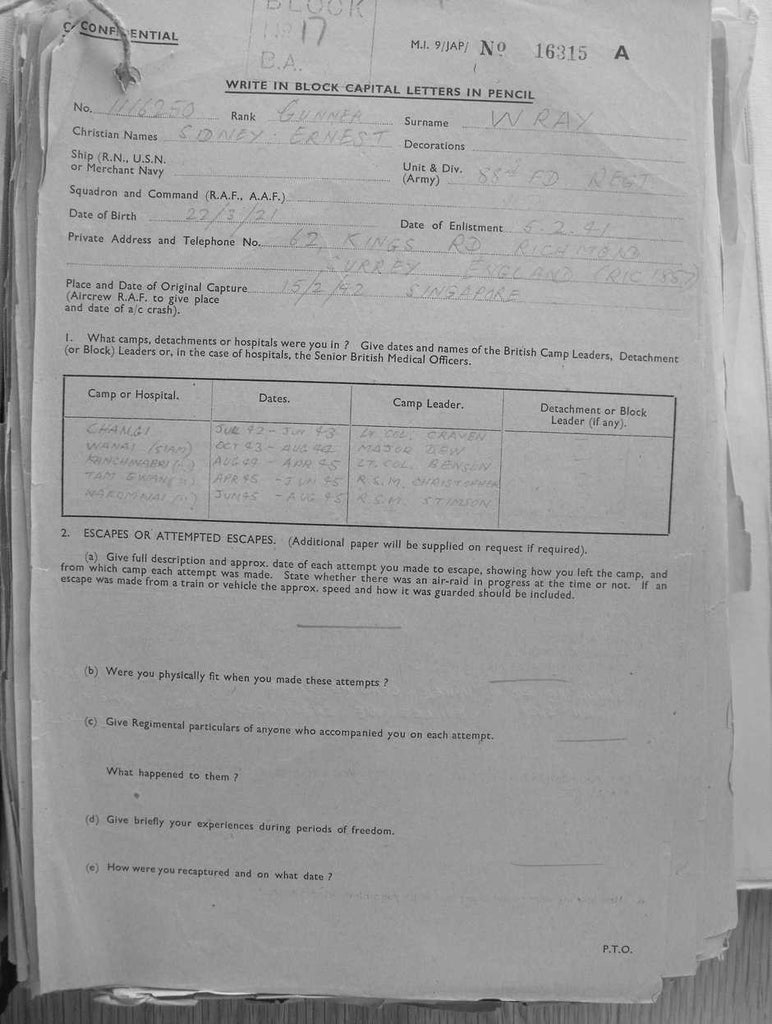 BLOCK
No 17
B.A.
CONFIDENTIAL
M.I. 9/JAP/ No 16315 A
WRITE IN BLOCK CAPITAL LETTERS IN PENCIL
No. 1116250 Rank GUNNER Surname WRAY
Christian Names SIDNEY ERNEST Decorations
Ship (R.N., U.S.N. or Merchant Navy
Unit & Div. (Army) 88TH FD REGT
Squadron and Command (R.A.F., A.A.F.)
Date of Birth 22/3/21 Date of Enlistment 5.2.41
Private Address and Telephone No. 62, KINGS RD RICHMOND
SURREY ENGLAND (RIC 1857)
Place and Date of Original Capture 15/2/42 SINGAPORE
(Aircrew R.A.F. to give place
and date of a/c crash).
1. What camps, detachments or hospitals were you in ? Give dates and names of the British Camp Leaders, Detachment
(or Block) Leaders or, in the case of hospitals, the Senior British Medical Officers.
Camp or Hospital. Dates. Camp Leader. Detachment or Block Leader (if any).
CHANGI 42 - 43 LT. COL. CRAVEN
WANAI (SIAM) OCT 43 - AUG 44 MAJOR DEW
AUG 44 - APR 45 LT. COL. BENSON
APR 45 - JUN 45 R.S.M. CHRISTOPHER
JUN 45 - AUG 45 R.S.M. STIMSON
2. ESCAPES OR ATTEMPTED ESCAPES. (Additional paper will be supplied on request if required).
(a) Give full description and approx. date of each attempt you made to escape, showing how you left the camp, and
from which camp each attempt was made. State whether there was an air-raid in progress at the time or not. If an
escape was made from a train or vehicle the approx. speed and how it was guarded should be included.
(b) Were you physically fit when you made these attempts ?
(c) Give Regimental particulars of anyone who accompanied you on each attempt.
What happened to them ?
(d) Give briefly your experiences during periods of freedom.
(e) How were you recaptured and on what date ?
P.T.O.